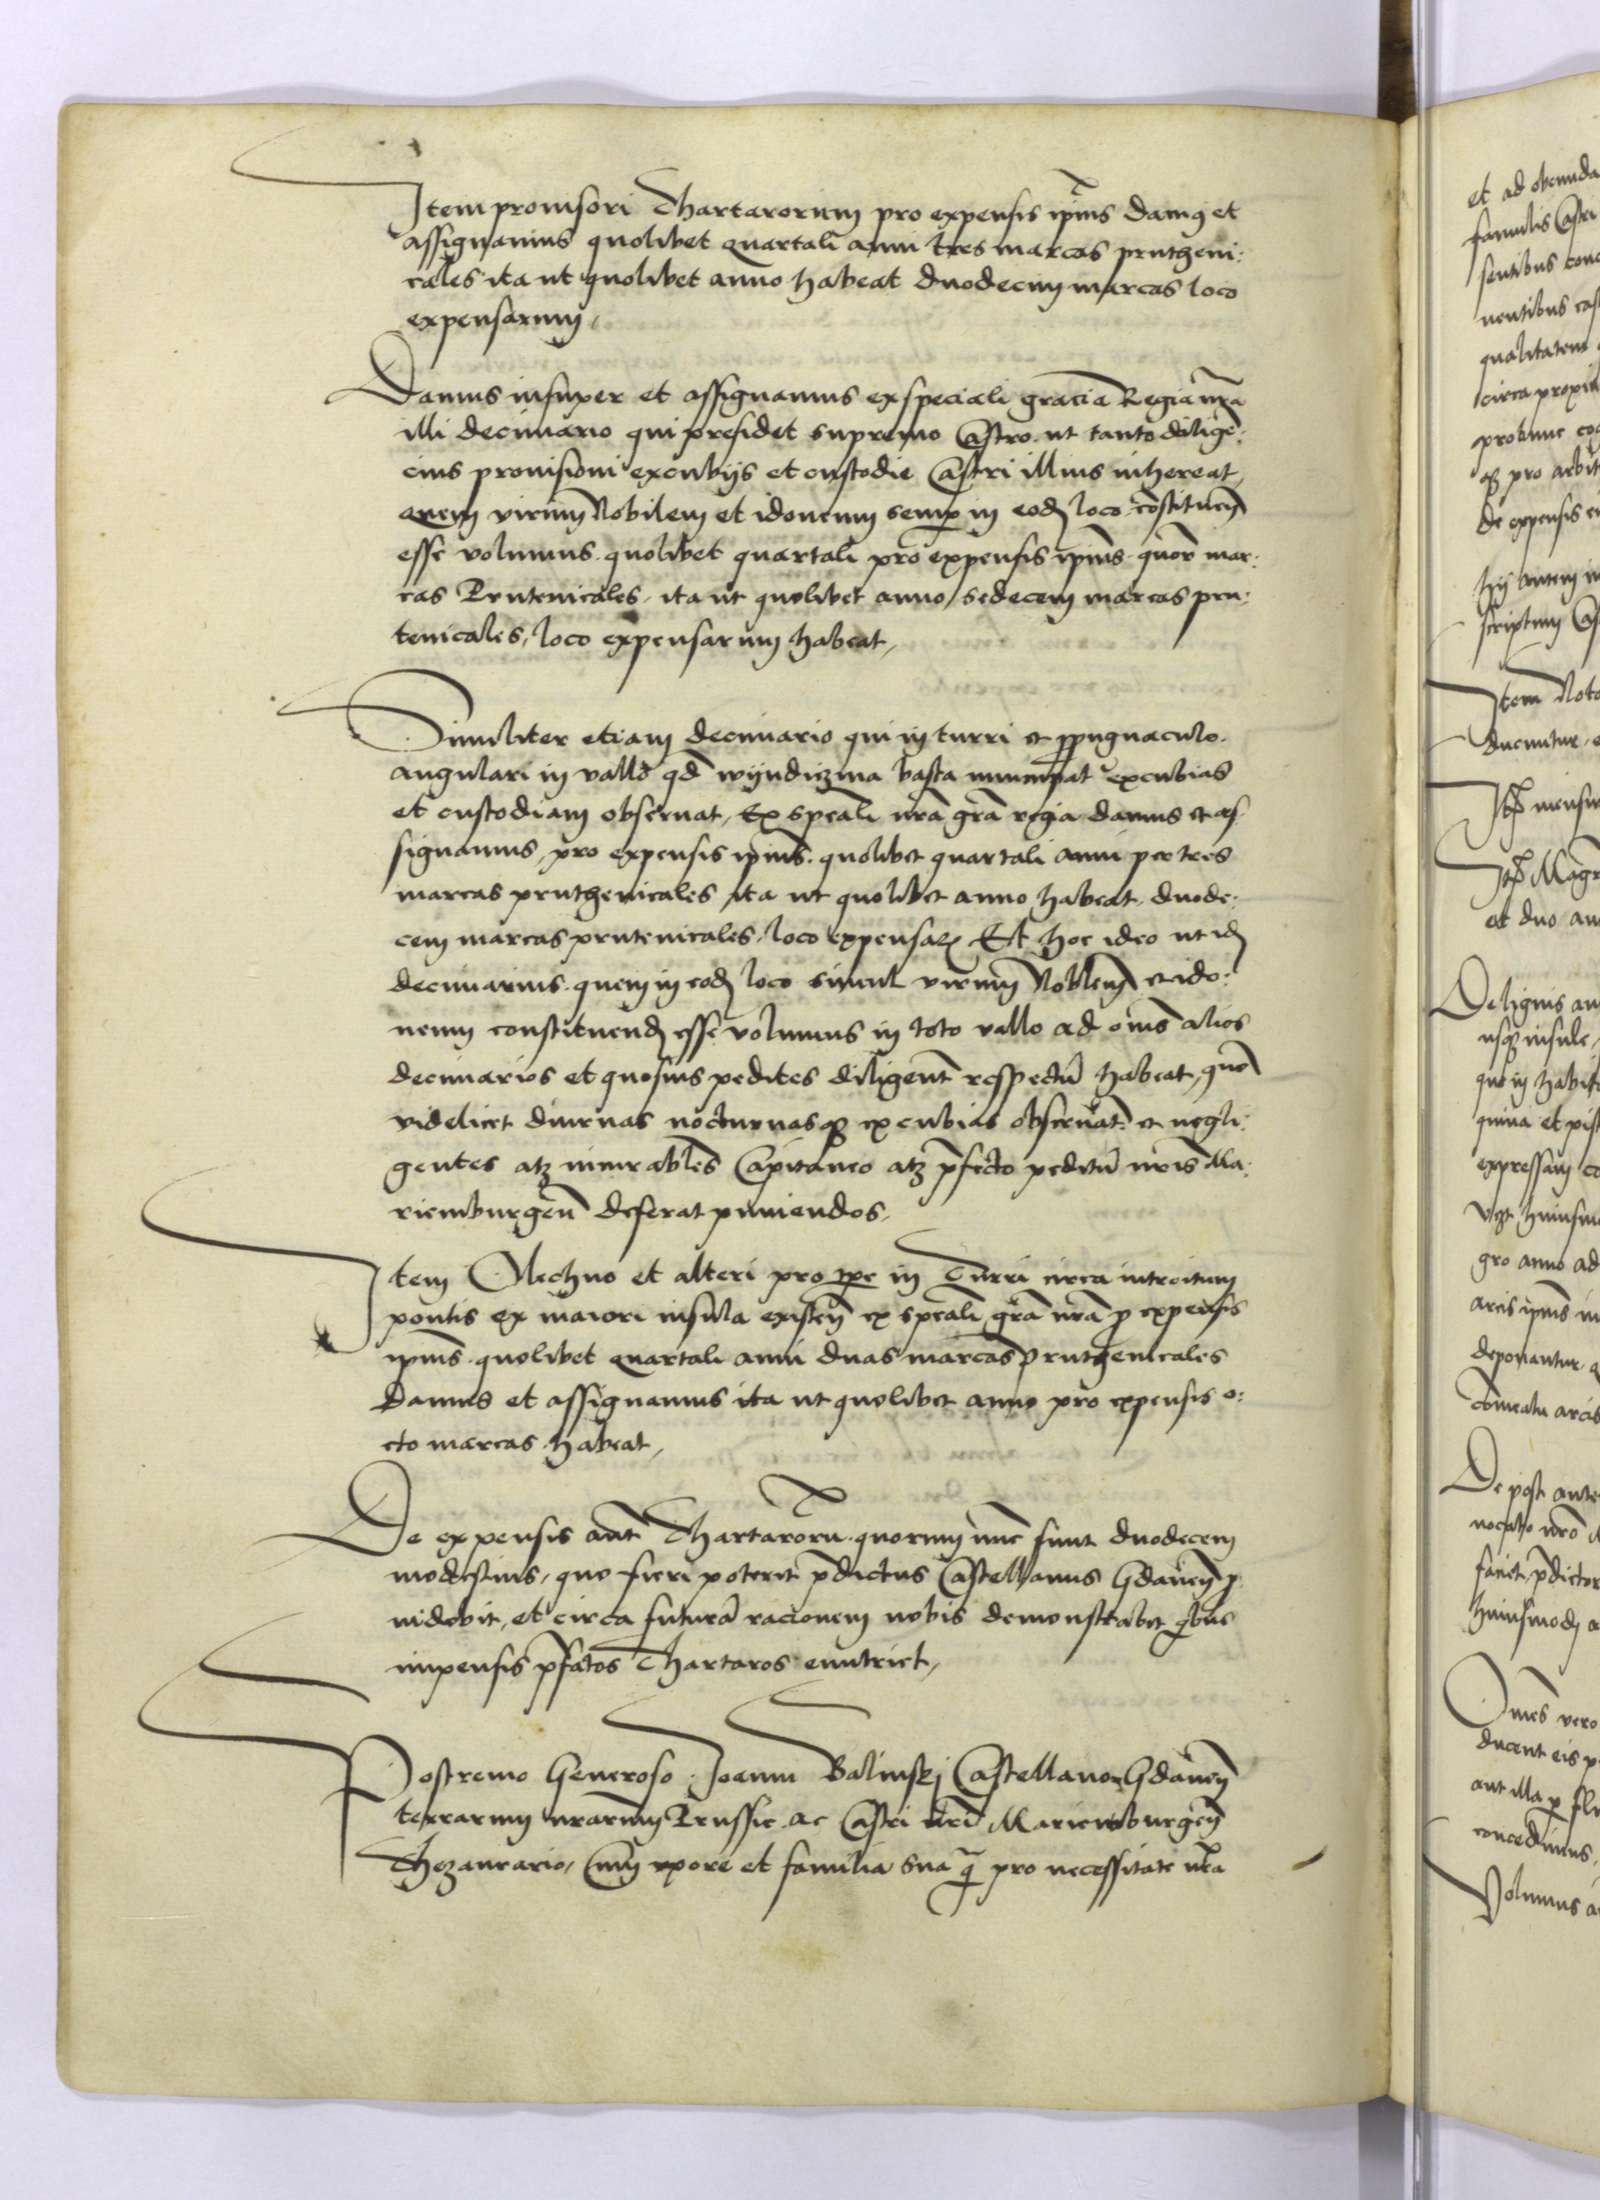 Item prouisori Thartarorum pro expensis ip̃ius damꝯ et
assignamus quolibet quartali anni tres marcas prutheni:
cales ita ut quolibet anno habeat duodecim marcas loco
expensarum,
Damus insuper et assignamus ex speciali gracia Regia nr̃a
illi decimario qui presidet supremo Castro. ut tanto dilige:
cius prouisioni excubijs et custodie Castri illius inhereat,
quem virum Nobilem et idoneum semp̱ in eod̃ loco constituen̄
esse volumus. quolibet quartali pro expensis ip̃ius. quor mar:
cas Prutenicales. ita ut quolibet anno, sedecem marcas pru:
tenicales, loco expensarum habeat,
Similiter etiam decimario qui in turri et ꝓpugnaculo.
angulari in vallo qd̄ wyndiczna basta nuncupat excubias
et custodiam obseruat, Ex spēali nr̃a gr̃a regia damus et as
signamus, pro expensis ip̃ius. quolibet quartali anni per tres
marcas pruthenicales, ita ut quolibet anno habeat. duode:
cem marcas prutenicales. loco expensaꝝ Et hoc ideo ut id̃
decimarius. quem in eod̃ loco simul virum Nobilem̄ et ido:
neum constituend̃ esse volumus in toto vallo ad om̄s alios
decimarios et quosuis pedites diligent̃ respectū habeat, quō
videlicet diurnas nocturnasqꝫ excubias obseruat̃. et negli:
gentes atqꝫ incurabiles Capitaneo atqꝫ p̄fecto peditū nr̃is Ma:
riemburgeñ deferat puniendos,
Item Olechno et alteri pro tp̄e in Turri circa introitum
pontis ex maiori insula existeñ ex spēali gr̃a nr̃a ꝓ expensis
ip̃ius. quolibet quartali anni duas marcas Pruthenicales
damus et assignamus ita ut quolibet anno pro expensis o:
cto marcas habeat,
De expensis aut̃ Thartarorū. quorum nūc sunt duodecem
modestius, quo fieri poterit p̄dictus Castellanus Gdaneñ ꝓ
uidebit, et circa futurā racionem nobis demonstrabit qͥbus
impensis p̄fatos Thartaros enutriet,
Postremo Generoso Joanni Balinskj Castellano Gdaneñ
terrarum nr̃arum Prussie ac Castri nr̃i Mariemburgeñ
Thezaurario, Cum vxore et familia sua q̃ pro necessitate nr̃a